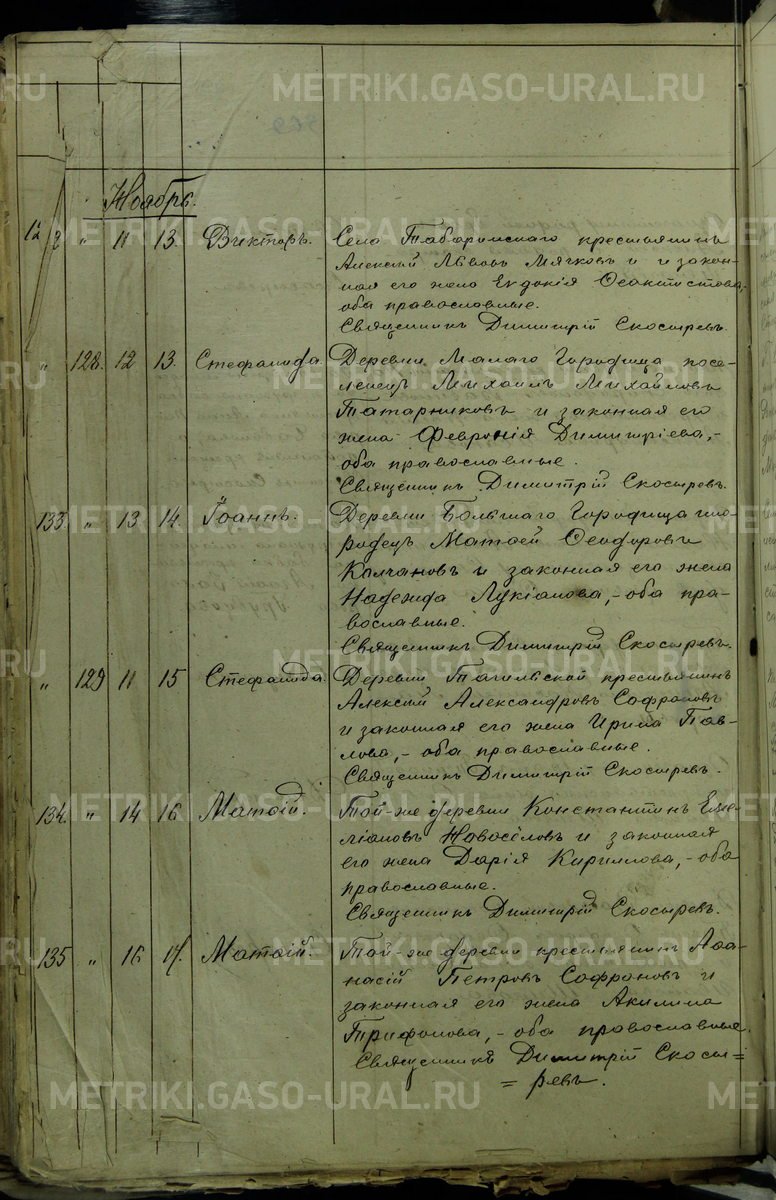 METRIKI.GASO-URAL.RU
Ноябрь.
„ 11 13. Викторъ. Село Табаринскаго крестьянинъ
Алексѣй Львовъ Мягковъ и закон-
ная его жена Евдокія Ѳеоктистова,
оба православные.
Священникъ Димитрій Скосыревъ.
„ 128. 12 13. Стефанида. Деревни Малаго Городища посе-
ленецъ Михаилъ Михайловъ
Татарниковъ и законная его
жена Февронія Димитріева,-
оба православные.
Священникъ Димитрій Скосыревъ.
133 „ 13 14. Іоаннъ. Деревни Большаго Городища ино-
родецъ Матѳей Ѳеодоровъ
Колчановъ и законная его жена
Надежда Лукіанова,- оба пра-
вославные.
Священникъ Димитрій Скосыревъ.
„ 129 11 15 Стефанида. Деревни Тагильской крестьянинъ
Алексѣй Александровъ Софроновъ
и законная его жена Ирина Пав-
лова,- оба православные.
Священникъ Димитрій Скосыревъ.
134. „ 14 16 Матѳій. Той-же деревни Константинъ Еме-
ліановъ Новосёловъ и законная
его жена Дарія Кириллова,- оба
православные.
Священникъ Димитрій Скосыревъ.
135 „ 16 17. Матѳій. Той-же деревни крестьянинъ Аѳа-
насій Петровъ Софроновъ и
законная его жена Акилина
Трифонова,- оба православные.
Священникъ Димитрій Скосы=
= ревъ.